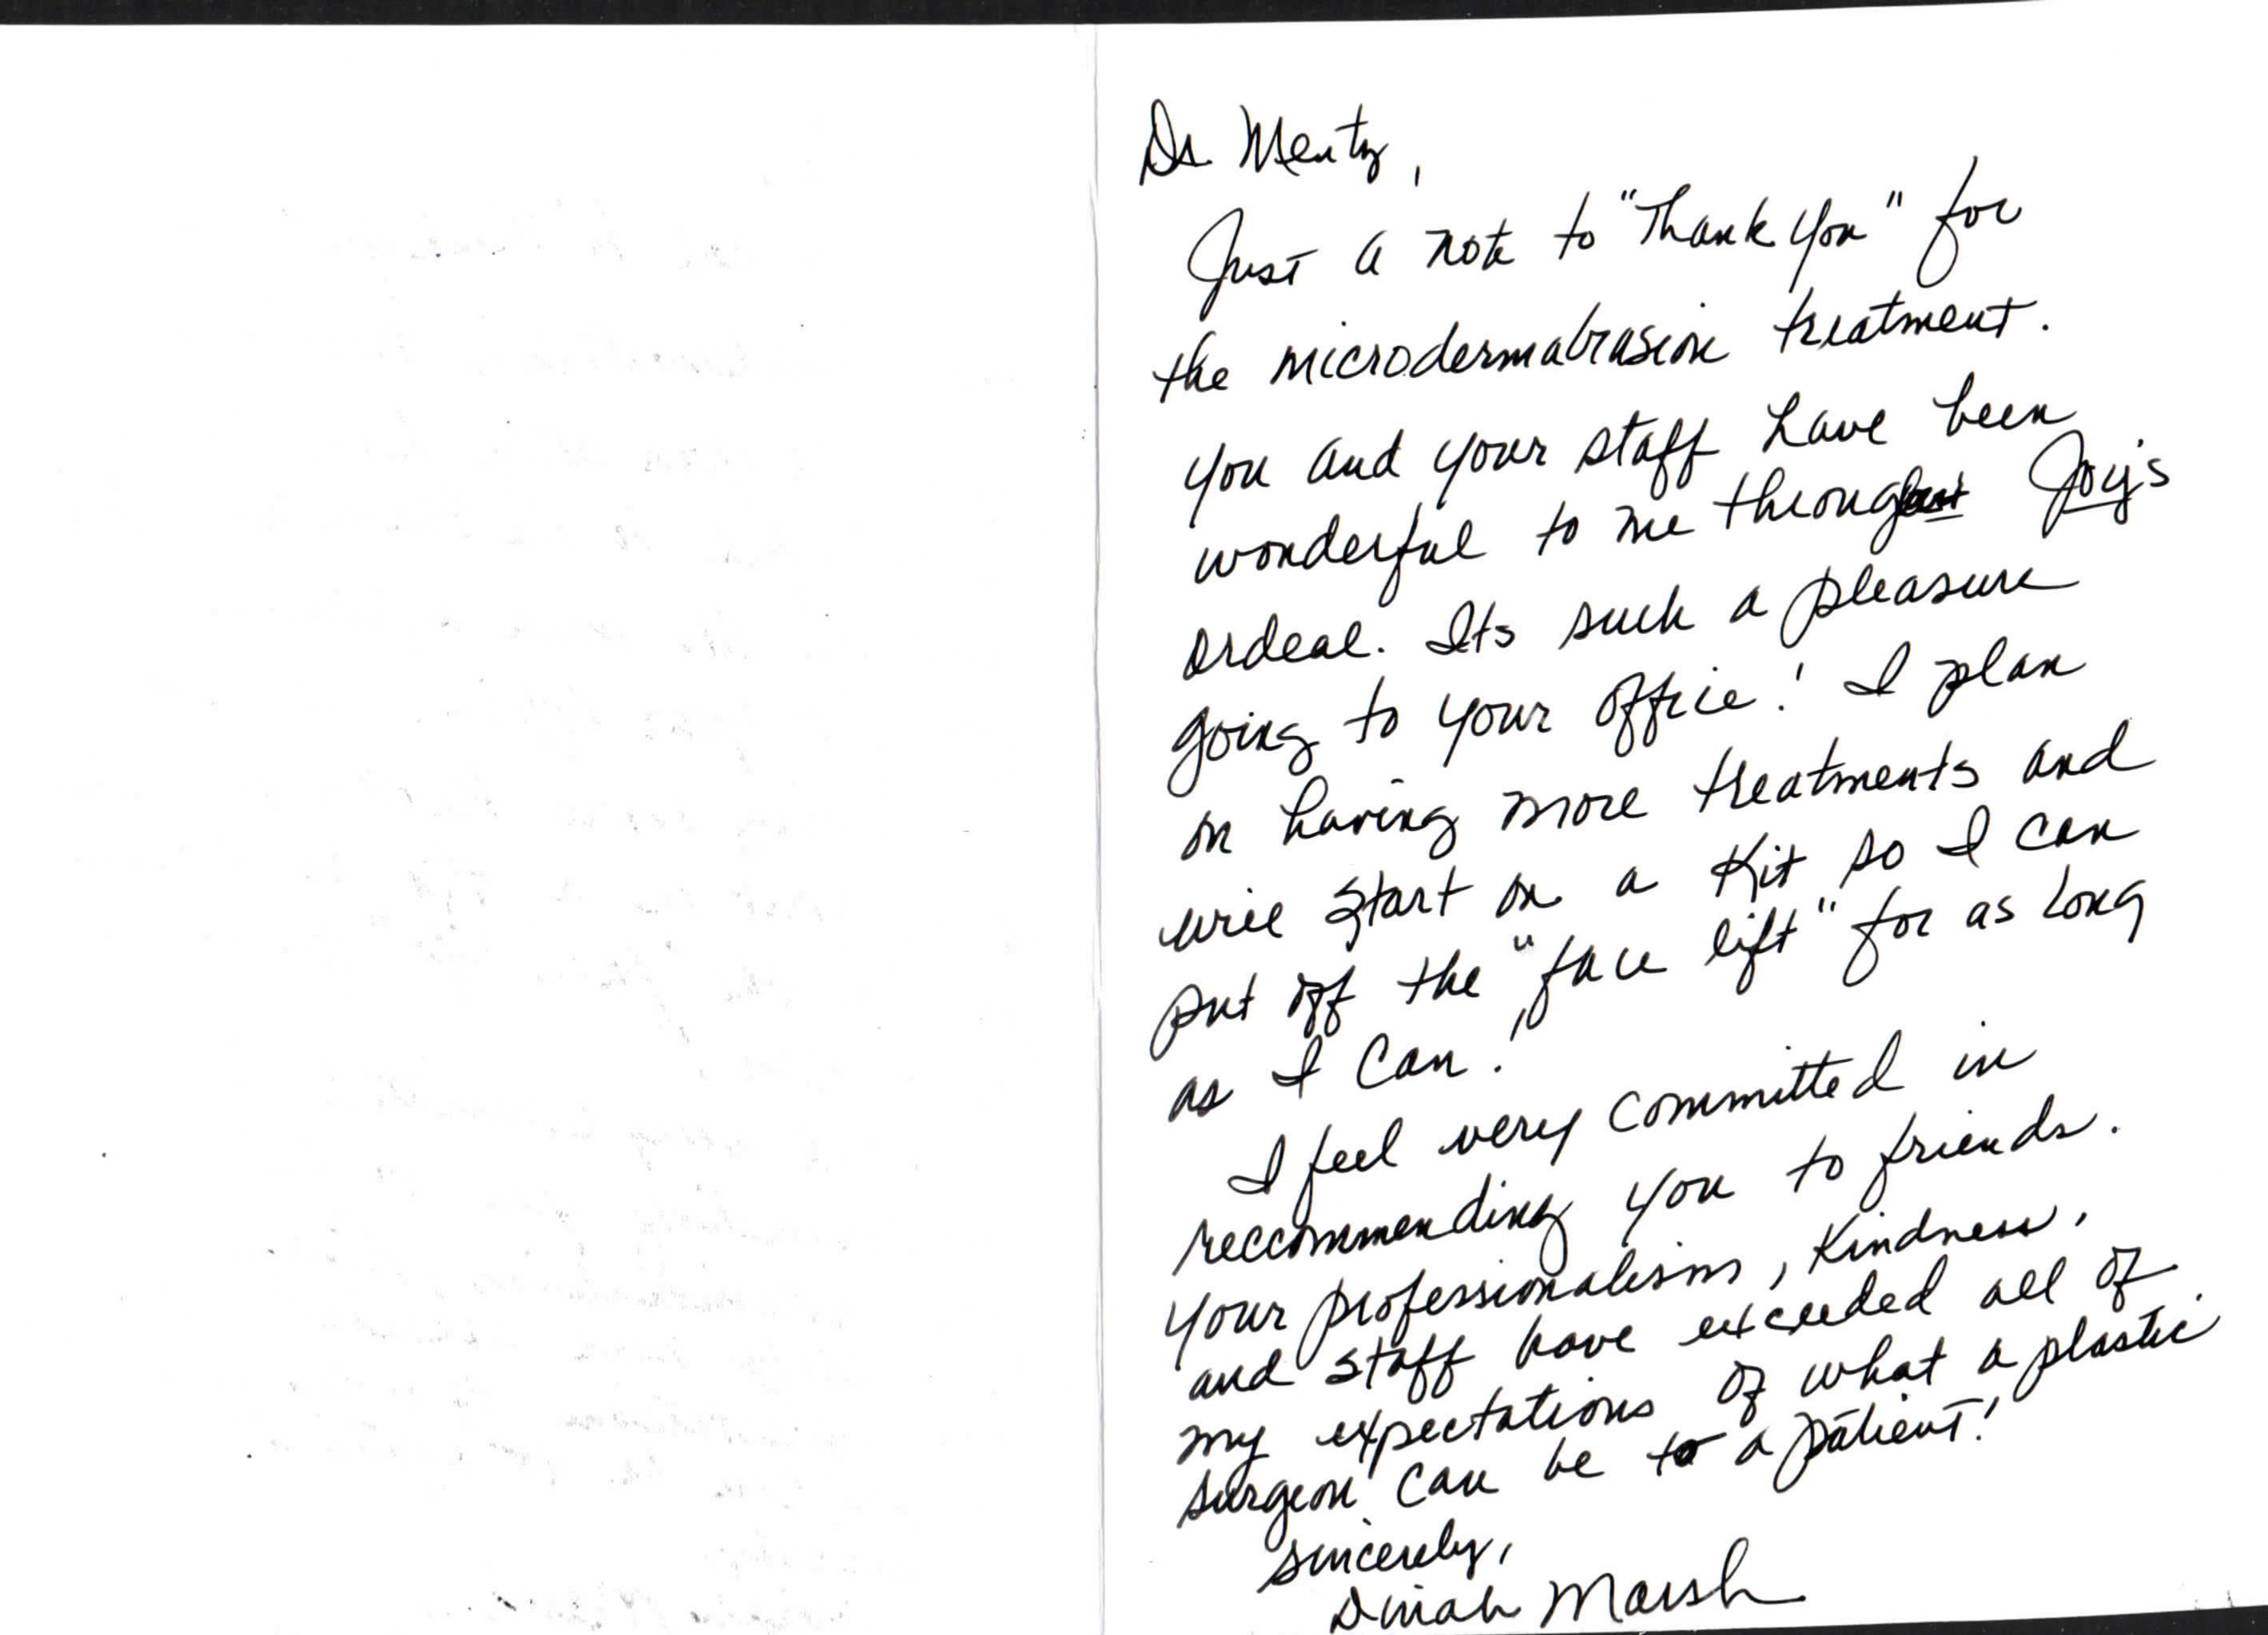 Dr. Mentz,
Just a note to "Thank You" for
the microdermabrasion treatment.
You and your staff have been
wonderful to me throughout Joy's
ordeal. Its such a pleasure
going to your office! I plan
on having more treatments and
will start on a Kit so I can
put off the "face lift" for as long
as I can!
I feel very committed in
reccommending you to friends.
Your professionalism, kindness,
and staff have exceeded all of
my expectations of what a plastic
surgeon can be to a patient!
Sincerely,
Dinah Marsh